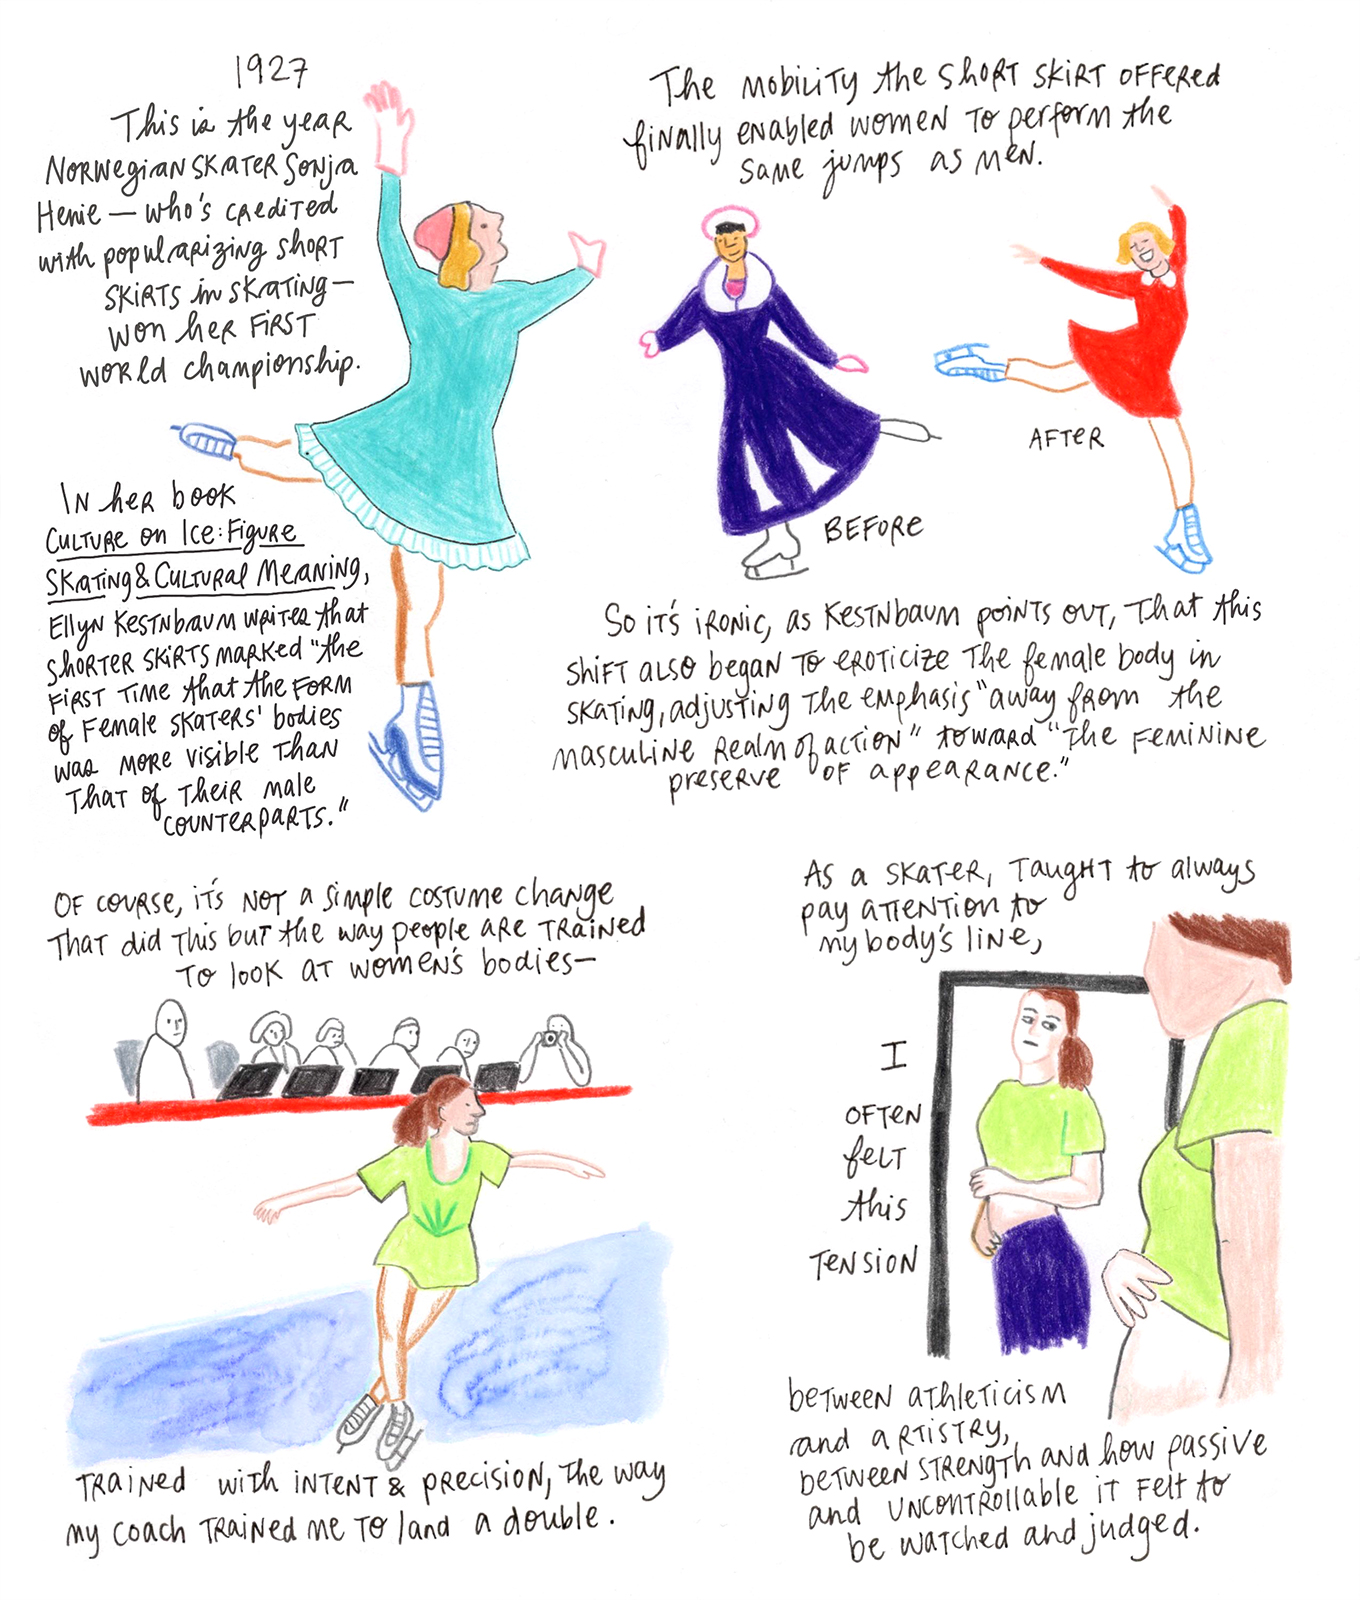 1927
This is the year
Norwegian skater Sonja
Henie — who's credited
with popularizing short
skirts in skating —
won her first
world championship.
In her book
Culture on Ice: Figure
Skating & Cultural Meaning,
Ellyn Kestnbaum writes that
shorter skirts marked "the
first time that the form
of female skaters' bodies
was more visible than
that of their male
counterparts."
The mobility the short skirt offered
finally enabled women to perform the
same jumps as men.
BEFORE
AFTER
So it's ironic, as Kestnbaum points out, that this
shift also began to eroticize the female body in
skating, adjusting the emphasis "away from the
masculine realm of action" toward "the feminine
preserve of appearance."
Of course, it's not a simple costume change
that did this but the way people are trained
to look at women's bodies—
trained with intent & precision, the way
my coach trained me to land a double.
As a skater, taught to always
pay attention to
my body's line,
I
often
felt
this
tension
between athleticism
and artistry,
between strength and how passive
and uncontrollable it felt to
be watched and judged.